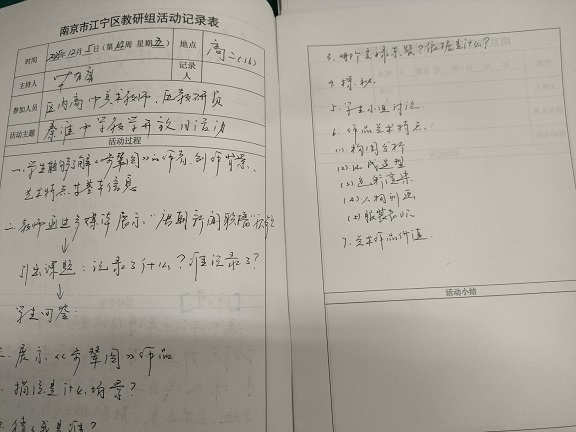 南京市江宁区教研组活动记录表
时间
2025年12月5日(第14周 星期五)
地点
高二(16)
主持人
记录人
参加人员
区内高中美术教师、区教研员
活动主题
秦淮中学教学开放日活动
活动过程
一.学生能够了解《步辇图》的作者、创作背景、
艺术特点等基本信息
二.教师通过多媒体展示:"唐朝新闻联播"
引出课题:记录了什么?谁记录了?
学生回答:
展示《步辇图》作品
描绘是什么场景?
猜
是谁?
3.哪个是禄东赞?依据是什么?
5.学生小组讨论
6.作品艺术特点:
(1)构图分析
(2)以线造型
(3)色彩渲染
(4)人物刻画
(5)服装
7.艺术作品价值
活动小结